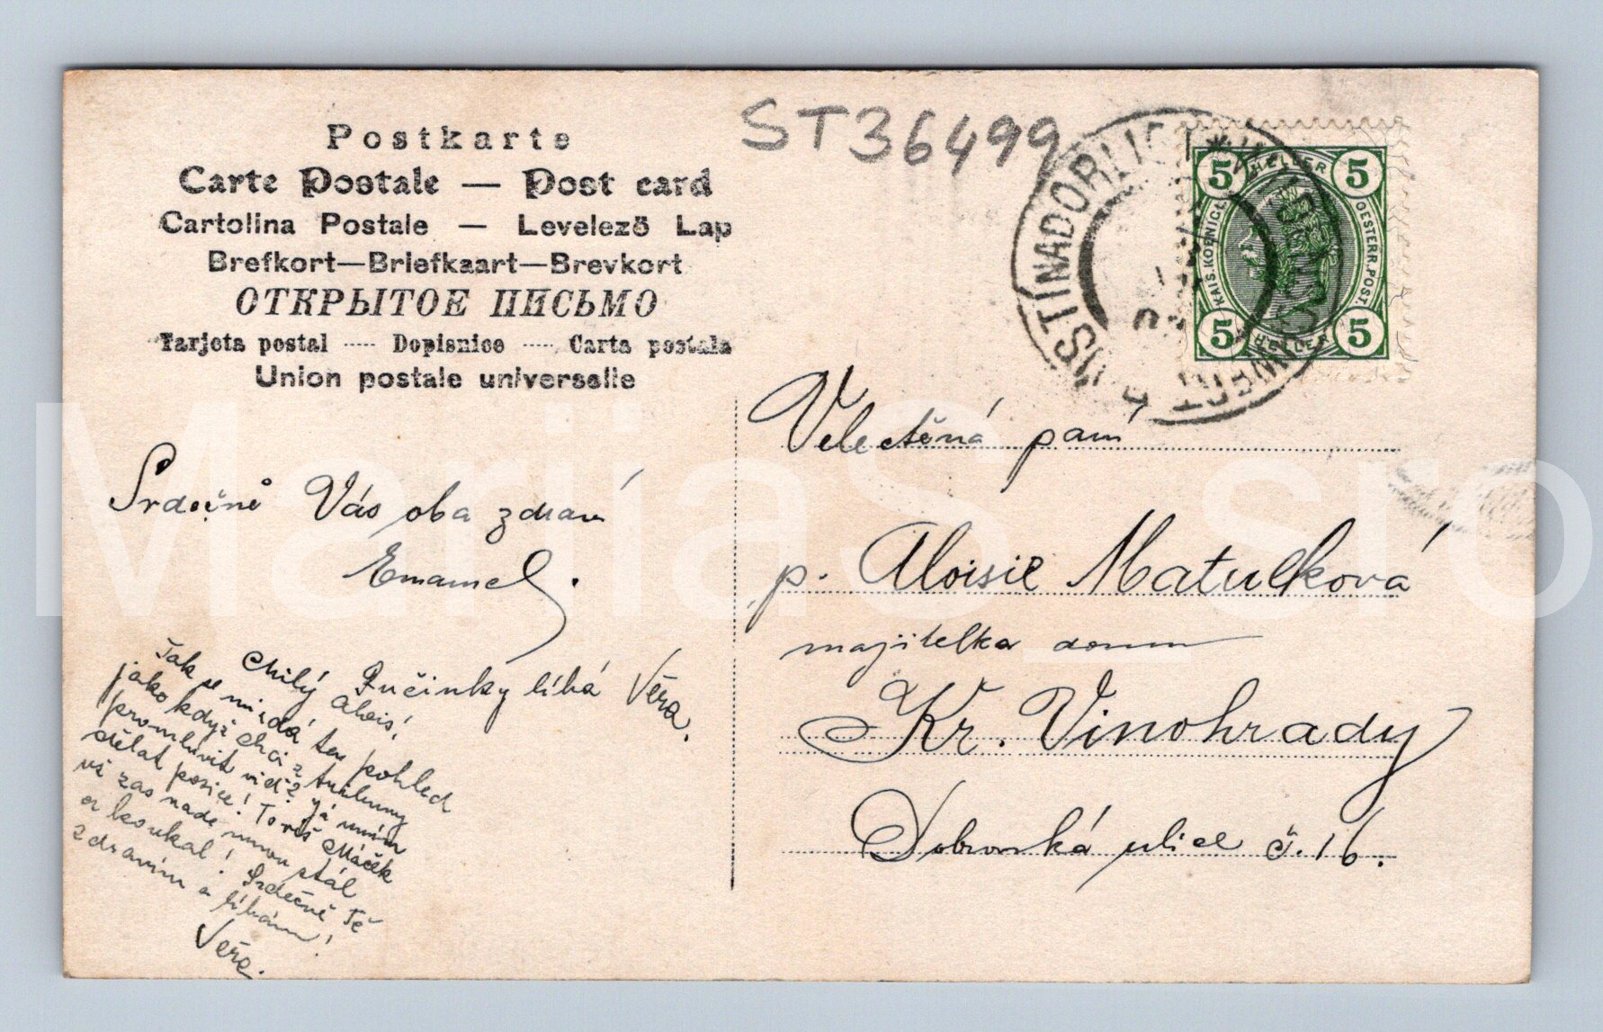 Postkarte
Carte Postale — Post card
Cartolina Postale — Levelező Lap
Brefkort—Briefkaart—Brevkort
ОТКРЫТОЕ ПИСЬМО
Tarjeta postal ---- Dopisnice ---- Carta postala
Union postale universelle
ST36499
ÚSTÍNADORLICÍ
5 HELLER 5
KAIS.KOENIGL. OESTERR.POST.
5 HELLER 5
Velectěná paní
p. Aloisie Matulková
majitelka domu
Kr. Vinohrady
Dobrovská ulice č. 16.
Srdečně Vás oba zdraví
Emanuel.
Ručinky líbá Věra.
Milý Alois!
Tak se mi zdá ten pohled
jako když chci z truhumy
promluvit viď? Já umím
dělat posice! To víš Máček
už zas nade mnou stál
a koukal! Srdečně Tě
zdravím a líbám!
Věra.
MarijaS_sro